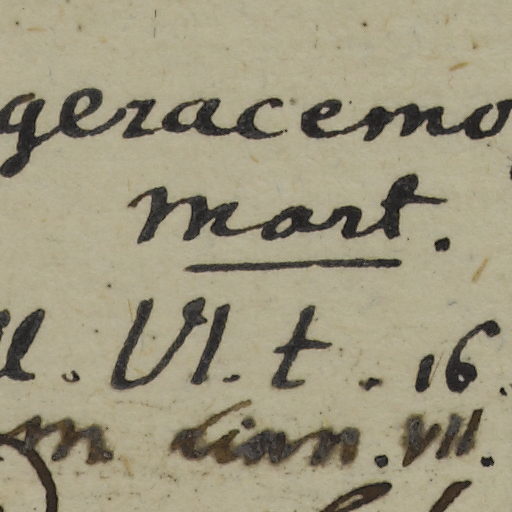 geracemo
Mart.
Vl. t. 16.
VII.